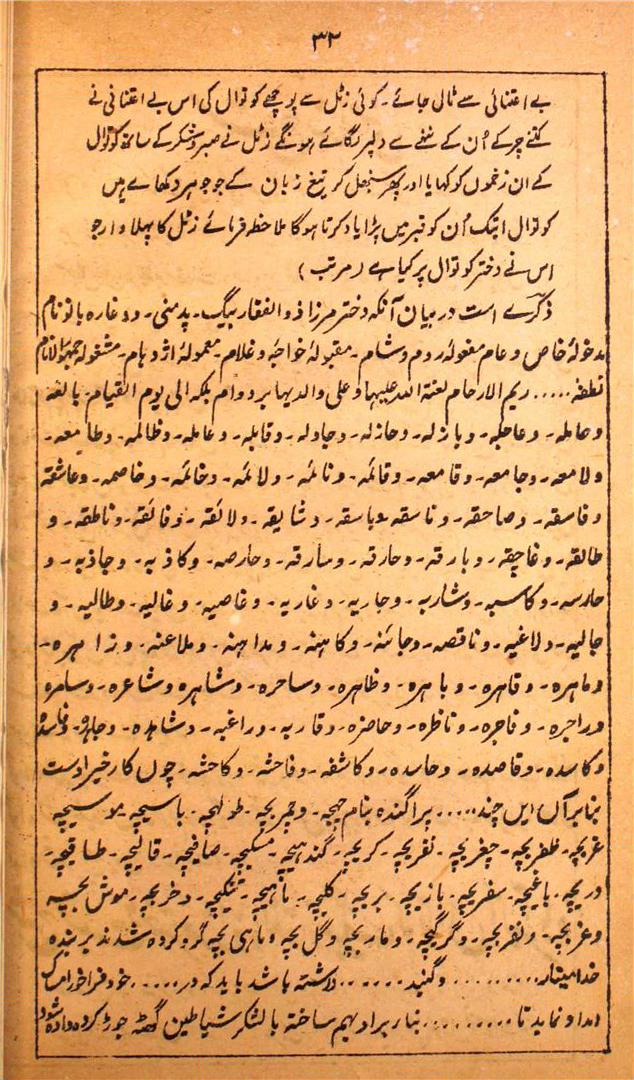 ۳۲
بے اعتنائی سے ٹالی جائے۔ کوئی زٹل سے پوچھے کوتوال کی اس بے اعتنائی نے
کتنے چرکے اُن کے ننھے سے دلپر لگائے ہونگے زٹل نے صبر و شکر کے ساتھ کوتوال
کے ان زخموں کو کھایا اور پھر سنبھل کر تیغ زبان کے جو جوہر دکھاے ہیں
کوتوال ابتک اُن کو قبر میں پڑا یاد کرتا ہوگا ملاحظہ فرمائے زٹل کا پہلا وار جو
اس نے دختر کوتوال پر کیا ہے (مرتب)
ذکرے است در بیان آنکہ دختر مرزا ذوالفقار بیگ۔ پدمنی۔ و وغارہ بانو نام
مدخولۂ خاص و عام مفعولۂ روم و شام۔ مقبولۂ خواجہ و غلام۔ معمولۂ اژدہام۔ مشغولہ جمہور الانام
نطفہ ..... ریم الارحام لعنۃ اللہ علیہا و علی والدیہا بر دوام بلکہ الی یوم القیام۔ بالغہ
و عاملہ۔ و عاجلہ۔ و بازلہ۔ و حازلہ۔ و جادلہ۔ و قابلہ۔ و عاملہ۔ و ظالمہ۔ و طامعہ۔
و لامعہ۔ و جامعہ۔ و قامعہ۔ و قائمہ۔ و نائمہ۔ و لائمہ۔ و خائمہ۔ و خاصمہ۔ و عاشقہ
و فاسقہ۔ و صاحقہ۔ و ناسقہ و باسقہ۔ و شایقہ۔ و لائقہ۔ و فائقہ۔ و ناطقہ۔ و
طالقہ۔ و بارقہ۔ و حارقہ۔ و سارقہ۔ و حارصہ۔ و کاذبہ۔ و جاذبہ۔ و
حارسہ۔ و کاسبہ۔ و شاربہ۔ و جاریہ۔ و غاریہ۔ و غاصیہ۔ و غالیہ۔ و طالبہ۔ و
جالیہ۔ و لاغیہ۔ و ناقصہ۔ و جائنہ۔ و کاہنہ۔ و مداہنہ۔ و ملاعنہ۔ و زاہرہ۔
و ماہرہ۔ و قاہرہ۔ و باہرہ۔ و ظاہرہ۔ و ساحرہ۔ و شاہرہ و شاعرہ۔ و سامرہ
و زاجرہ۔ و فاجرہ۔ و ناظرہ۔ و حاضرہ۔ و قاربہ۔ و راغبہ۔ و شاہدہ۔ و جاہدہ۔ و فاسدہ
و کاسدہ۔ و قاصدہ۔ و حاسدہ۔ و کاشفہ۔ و فاحشہ۔ و کاحشہ۔ چوں کار خیر اوست
بنا بر آں ایں چند ..... پراگندہ بنام چیچہ۔ و چربچہ۔ طولچہ۔ باسیچہ۔ موسیچہ
غربچہ۔ ظفربچہ۔ چغربچہ۔ نفربچہ۔ کربچہ۔ گندبچہ۔ مسکبچہ۔ صافیچہ۔ قالیچہ۔ طاقچہ۔
دریچہ۔ باغیچہ۔ سفربچہ۔ بازیچہ۔ بربچہ۔ کلیچہ۔ ماہیچہ۔ تنکیچہ۔ دخربچہ۔ موش بچہ
و غربچہ۔ و نفربچہ۔ و گرگبچہ۔ و ماربچہ و گل بچہ و ماہی بچہ گرو کردہ شدند بر بندہ
خدامیتار ......... و گنبد ...... داشتہ باشد باید کہ در ..... خود فراخور
امداد نماید تا ......... بنا بر او بہم ساختہ بالشکر شیاطین گھٹہ جوڑ کردہ دادہ شود